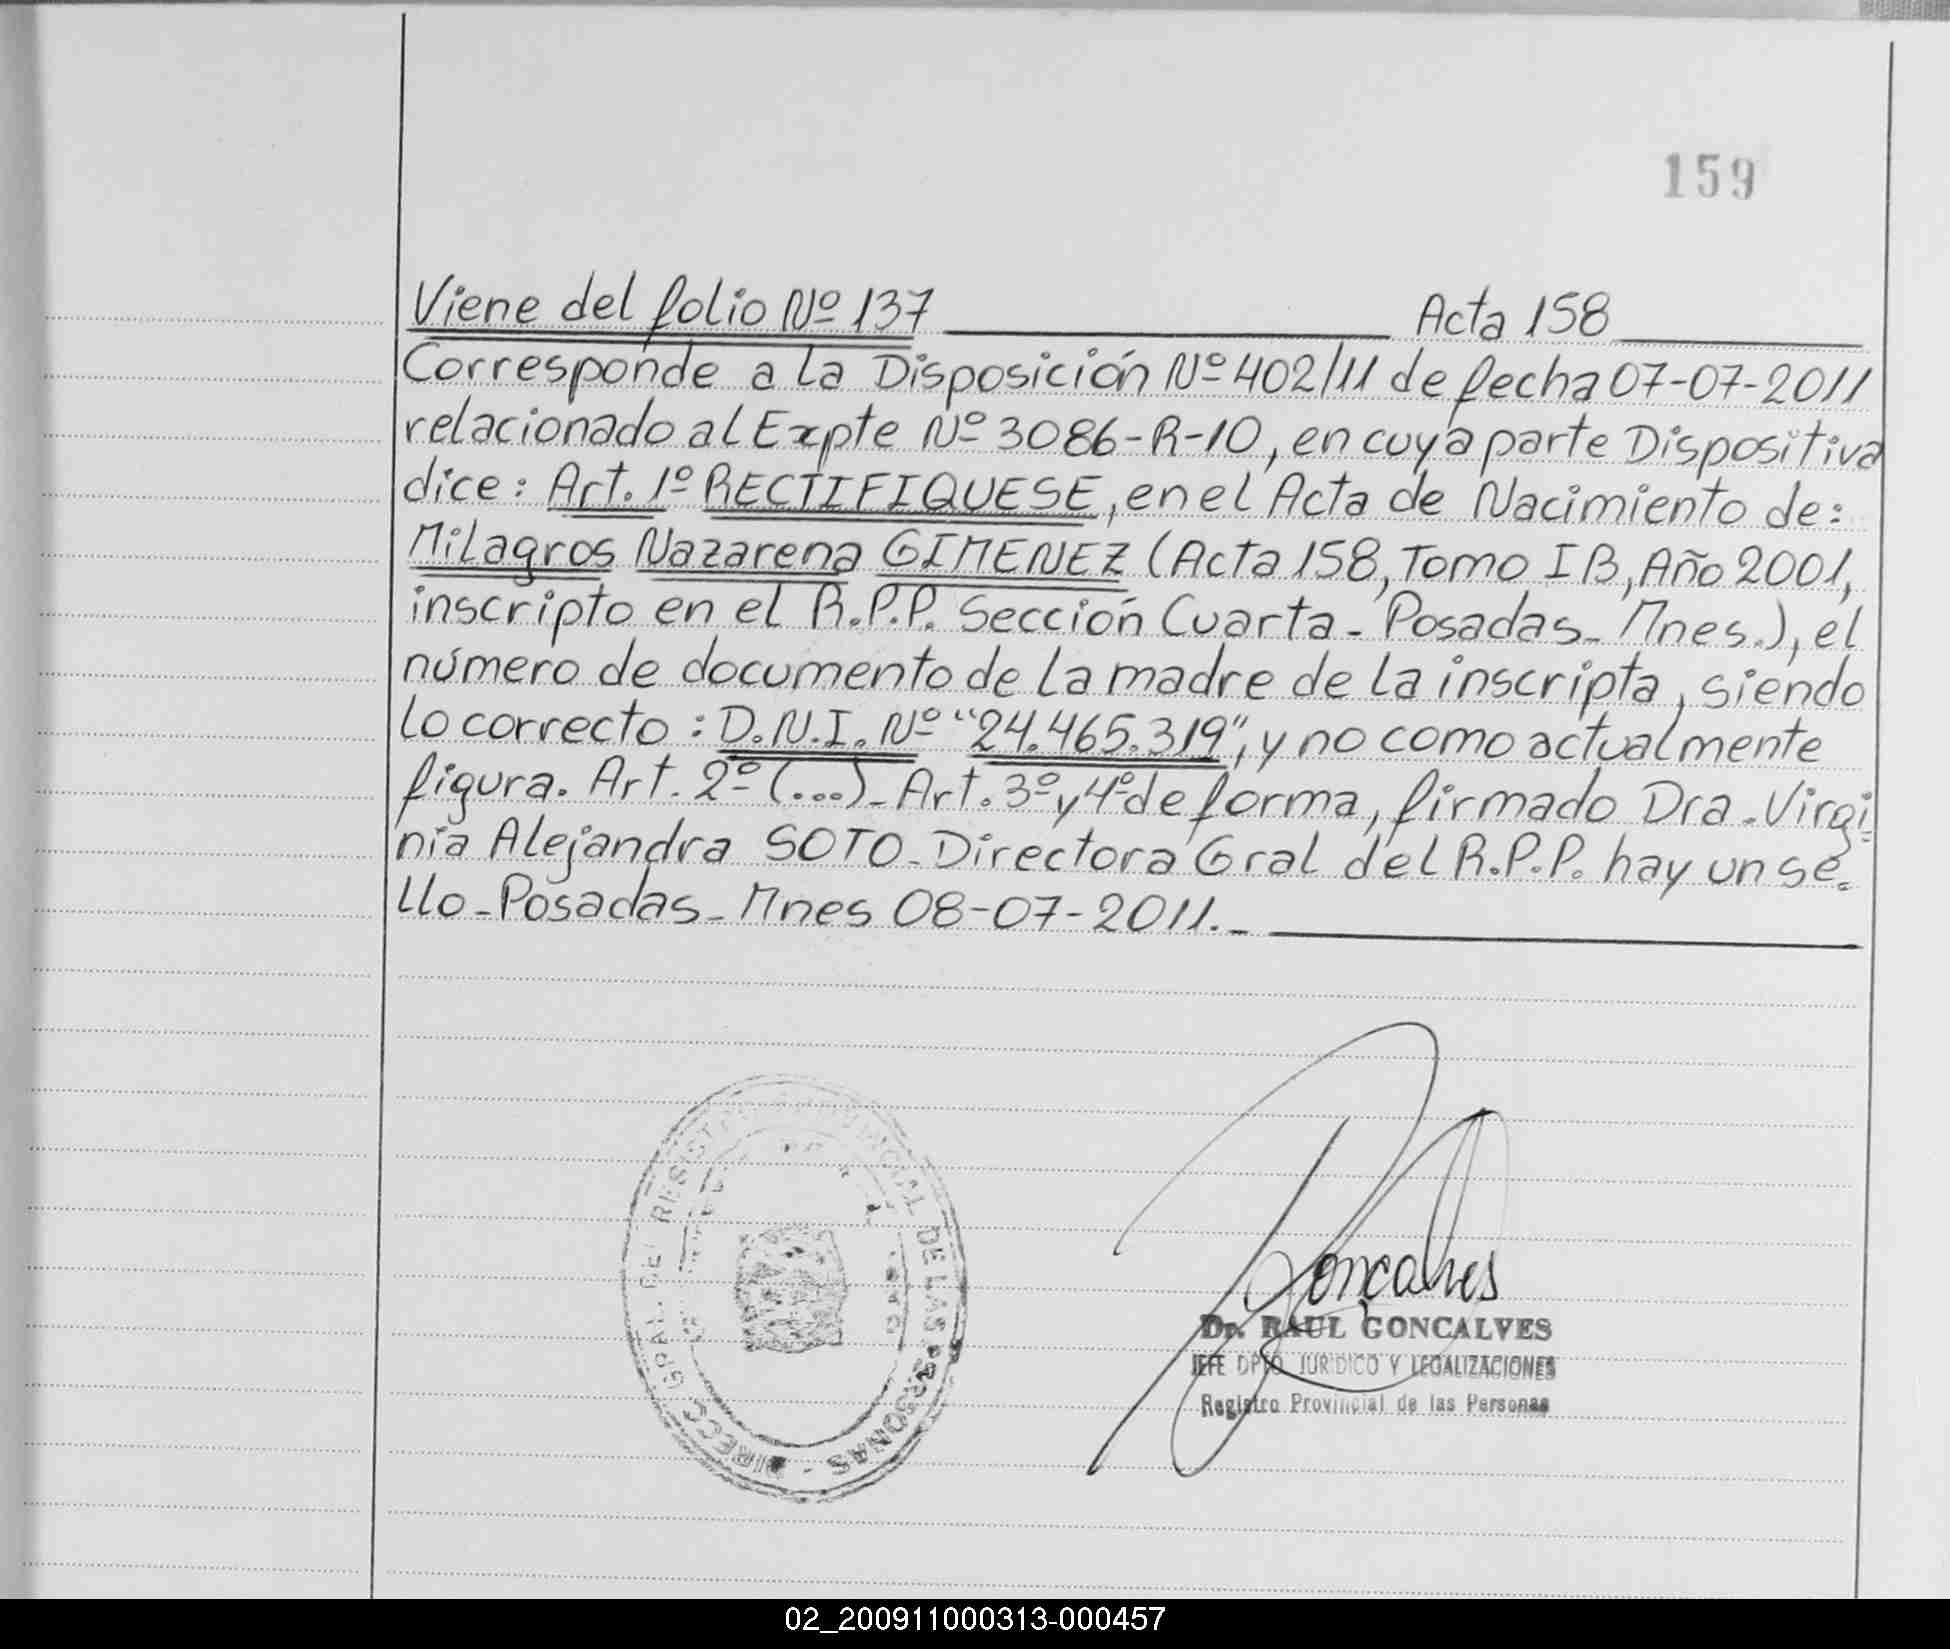 159
Viene del folio Nº 137 Acta 158
Corresponde a la Disposición Nº 402/11 de fecha 07-07-2011
relacionado al Expte Nº 3086-R-10, en cuya parte Dispositiva
dice: Art. 1º RECTIFIQUESE, en el Acta de Nacimiento de:
Milagros Nazarena GIMENEZ (Acta 158, Tomo I B, Año 2001,
inscripto en el R.P.P. Sección Cuarta - Posadas - Mnes.), el
número de documento de la madre de la inscripta, siendo
lo correcto: D.N.I. Nº "24.465.319", y no como actualmente
figura. Art. 2º (...) - Art. 3º y 4º de forma, firmado Dra. Virgi
nia Alejandra SOTO - Directora Gral del R.P.P. hay un se=
llo - Posadas - Mnes 08-07-2011. -
DIRECC GRAL DEL REGISTRO PROVINCIAL DE LAS PERSONAS -
Goncalves
Dr. RAUL GONCALVES
JEFE DPTO. JURIDICO Y LEGALIZACIONES
Registro Provincial de las Personas
02_200911000313-000457